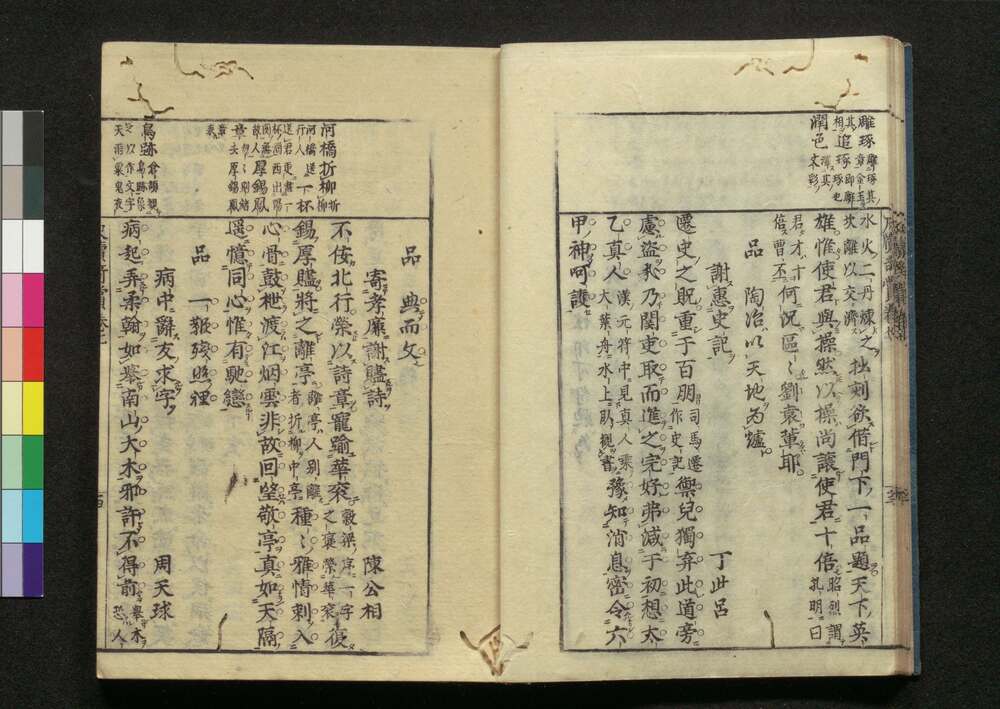 雕琢
雕琢其
章金玉
其
相
追琢
琢也
即雕
潤色
水火二丹煉之拙刻欲借門下一品題天下英
雄惟使君與操然以操尚讓使君十倍
昭烈謂
孔明曰
君才十
倍曹丕
何況區〻劉袁輩耶
品 陶冶以天地為爐
謝惠史記 丁此呂
遷史之貺重于百朋
司馬遷
作史記
禦兒獨弃此道旁
慮盜丮乃関吏取而進之完好弗減于初想太
乙真人
漢元符中見真人乘
大葉舟水上臥觀書
豫知消息密令六
甲神呵護
品 典而文
寄孝廉謝贐詩 陳公相
河橋折柳
不佞北行榮以詩章寵踰華衮
穀梁序一字
之褒榮華衮
復
一杯
錫厚贐將之離亭
離亭人别離
者折柳中亭
種〻雅情刺入
厚錫
心骨鼓枻渡江烟雲非故回望敬亭真如天隔
還憶同心惟有馳戀
品 一報殘照裡
病中辭友求字 周天球
鳥跡
倉頡觀
鳥跡
以作文字
天雨粟鬼夜
病起弄柔翰如舉南山大木邪許不得前
舉木
恐人